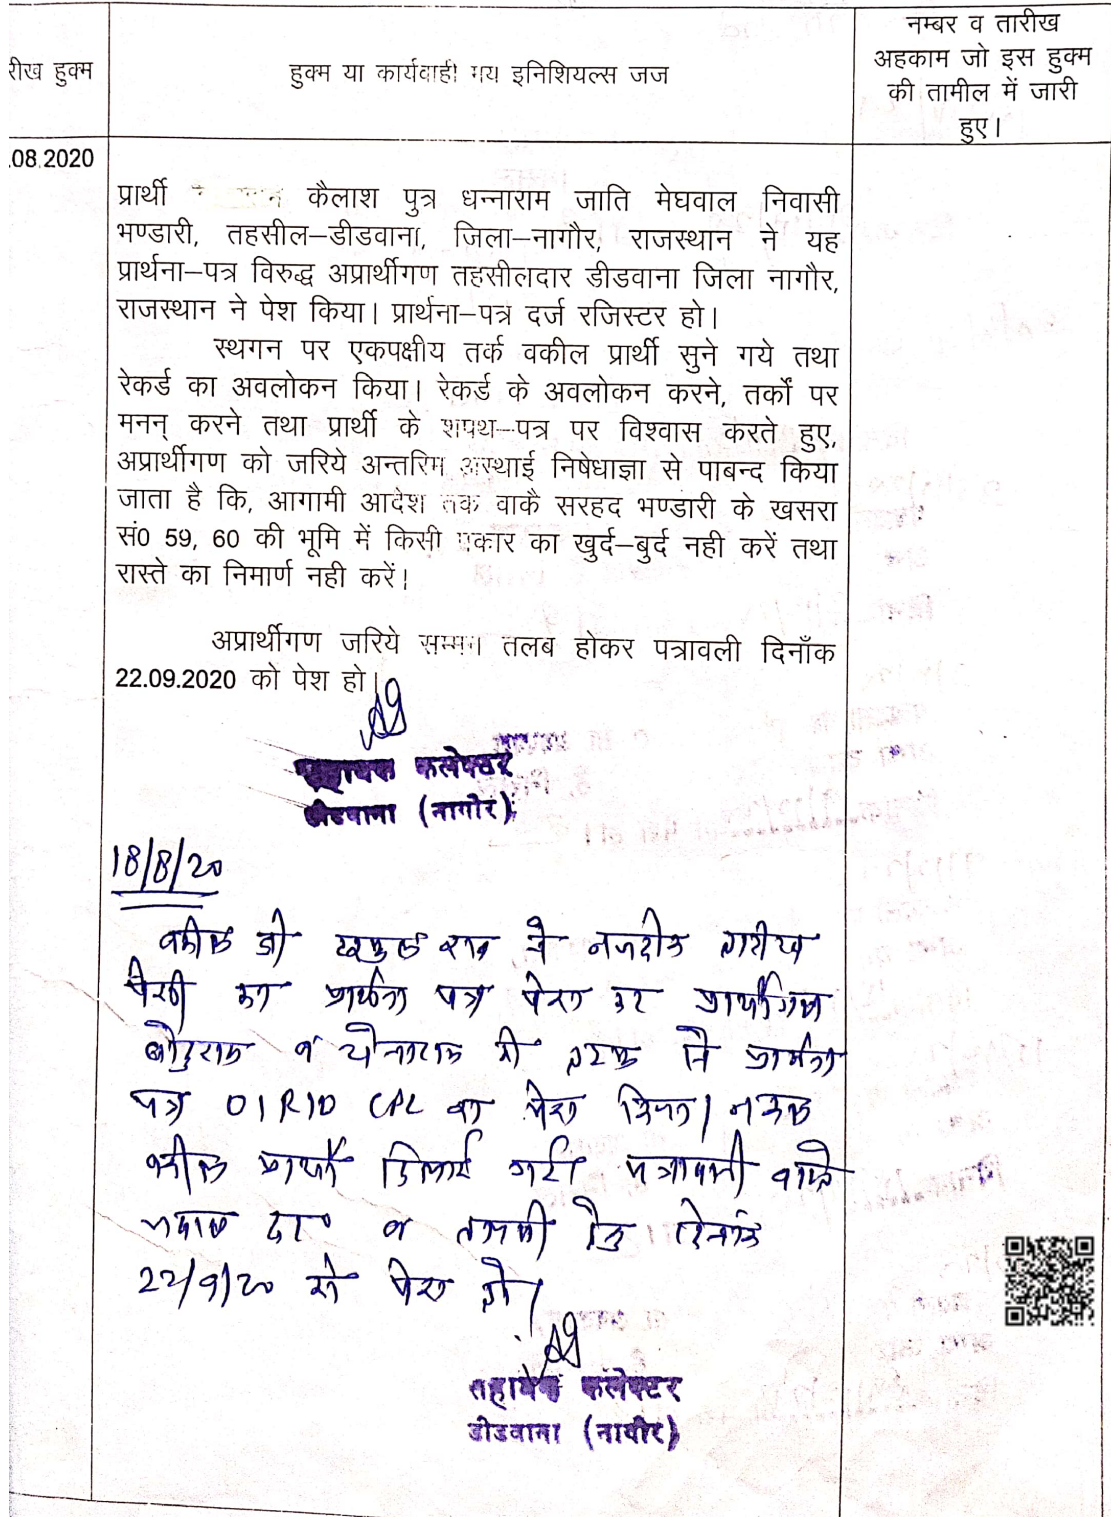 रीख हुक्म
हुक्म या कार्यवाही मय इनिशियल्स जज
नम्बर व तारीख
अहकाम जो इस हुक्म
की तामील में जारी
हुए।
.08.2020
प्रार्थी कैलाश पुत्र धन्नाराम जाति मेघवाल निवासी
भण्डारी, तहसील–डीडवाना, जिला–नागौर, राजस्थान ने यह
प्रार्थना–पत्र विरुद्ध अप्रार्थीगण तहसीलदार डीडवाना जिला नागौर,
राजस्थान ने पेश किया। प्रार्थना–पत्र दर्ज रजिस्टर हो।
स्थगन पर एकपक्षीय तर्क वकील प्रार्थी सुने गये तथा
रेकर्ड का अवलोकन किया। रेकर्ड के अवलोकन करने, तर्कों पर
मनन् करने तथा प्रार्थी के शपथ–पत्र पर विश्वास करते हुए,
अप्रार्थीगण को जरिये अन्तरिम अस्थाई निषेधाज्ञा से पाबन्द किया
जाता है कि, आगामी आदेश तक वाकै सरहद भण्डारी के खसरा
सं0 59, 60 की भूमि में किसी प्रकार का खुर्द–बुर्द नही करें तथा
रास्ते का निमार्ण नही करें।
अप्रार्थीगण जरिये सम्मन तलब होकर पत्रावली दिनाँक
22.09.2020 को पेश हो।
सहायक कलेक्टर
डीडवाना (नागौर)
18/8/20
वकील श्री ने नजदीक तारीख
पेशी का प्रार्थना पत्र पेश कर प्रार्थीगण
व की तरफ से प्रार्थना
पत्र O1R10 CPC का पेश किया। नकल
वकील प्रार्थी दिलाई गई। पत्रावली वास्ते
जवाब व तलबी हेतु दिनांक
22/9/20 को पेश हो।
सहायक कलेक्टर
डीडवाना (नागौर)